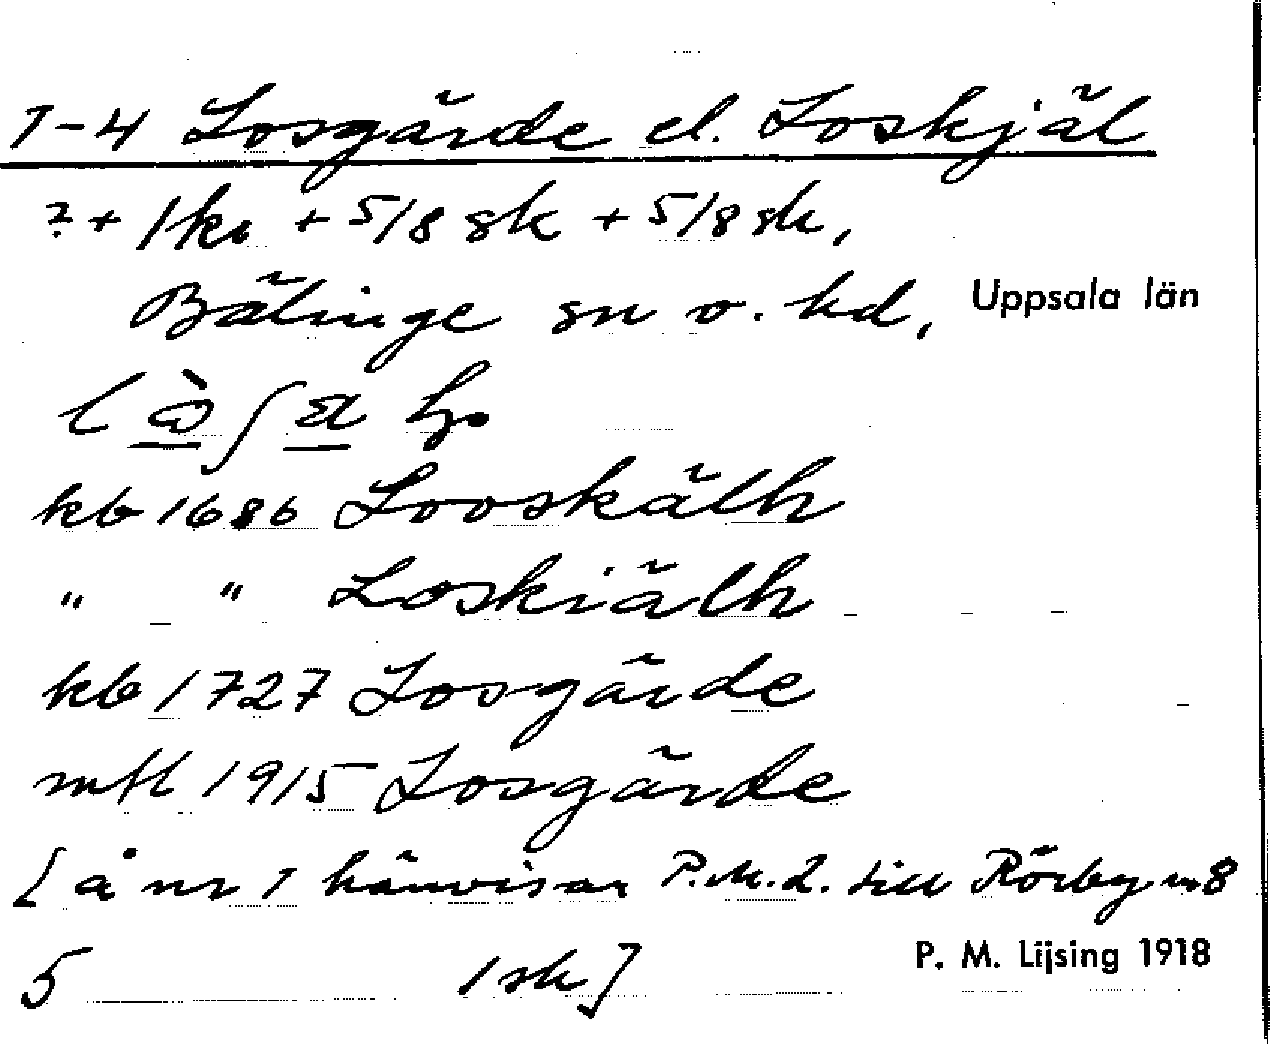 1-4 Losgärde el. Loskjäl
? + 1 kr + 5/8 sk + 5/8 sk,
Bälinge sn o. hd, Uppsala län
kb 1686 Looskälh
" " Loskiälh
kb 1727 Losgärde
mtl 1915 Losgärde
[å nr 1 hänvisar P.M.L. till Rörby nr 8
5 1 sk]
P. M. Lijsing 1918